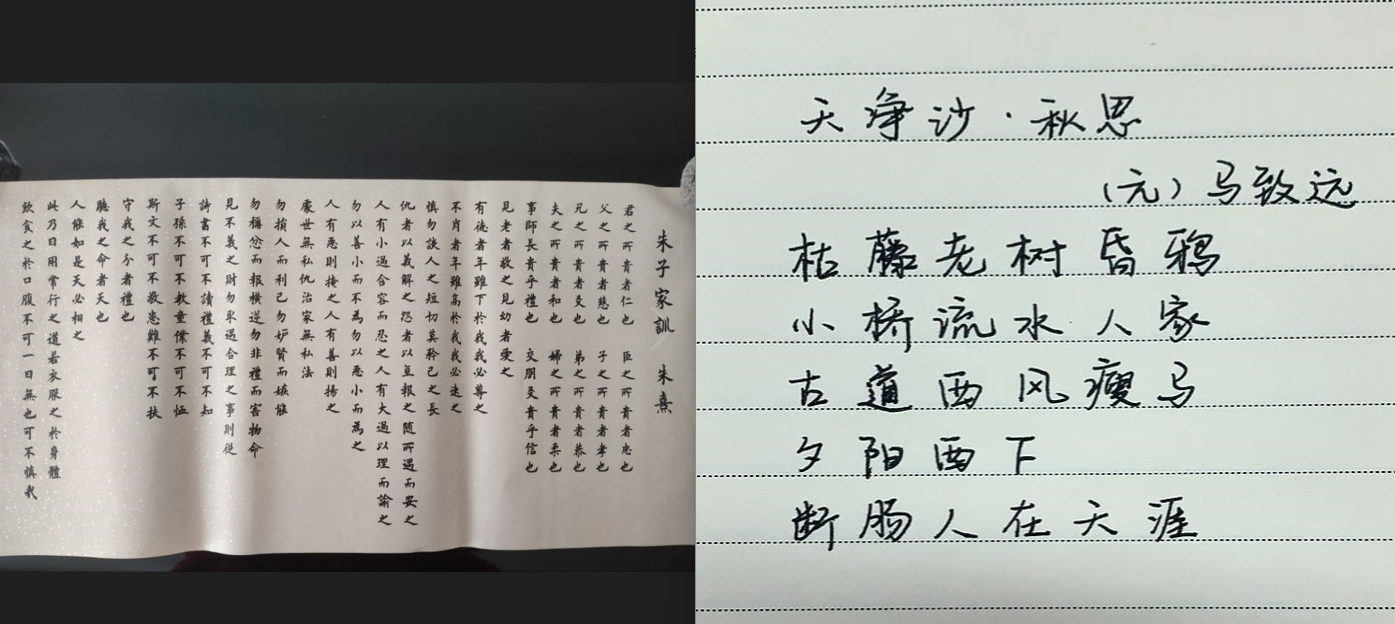 朱子家訓 朱熹
君之所貴者仁也 臣之所貴者忠也
父之所貴者慈也 子之所貴者孝也
兄之所貴者友也 弟之所貴者恭也
夫之所貴者和也 婦之所貴者柔也
事師長貴乎禮也 交朋友貴乎信也
見老者敬之見幼者愛之
有德者年雖下於我我必尊之
不肖者年雖高於我我必遠之
慎勿談人之短切莫矜己之長
仇者以義解之怨者以直報之隨所遇而安之
人有小過含容而忍之人有大過以理而諭之
勿以善小而不為勿以惡小而為之
人有惡則掩之人有善則揚之
處世無私仇治家無私法
勿損人而利己勿妒賢而嫉能
勿稱忿而報橫逆勿非禮而害物命
見不義之財勿取遇合理之事則從
詩書不可不讀禮義不可不知
子孫不可不教童僕不可不恤
斯文不可不敬患難不可不扶
守我之分者禮也
聽我之命者天也
人能如是天必相之
此乃日用常行之道若衣服之於身體
飲食之於口腹不可一日無也可不慎哉
天净沙·秋思
（元）马致远
枯藤老树昏鸦
小桥流水人家
古道西风瘦马
夕阳西下
断肠人在天涯